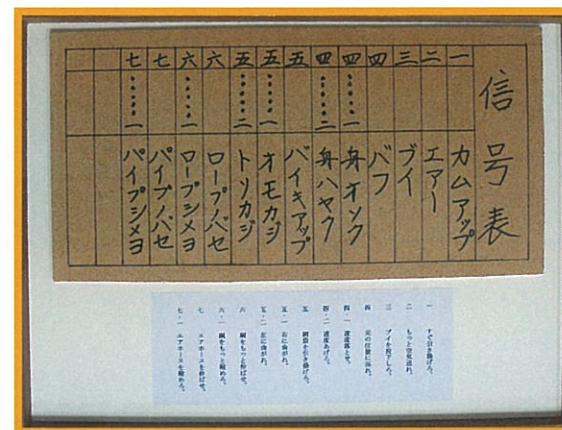 信号表
一 カムアップ
二 エアー
三 ブイ
四 バフ
四……一 舟オソク
四……二 舟ハヤク
五 バイキアップ
五……一 オモカジ
五……二 トリカジ
六 ロープノバセ
六……一 ロープシメヨ
七 パイプノバセ
七……一 パイプシメヨ
一 すぐ引き揚げろ。
二 もっと空気送れ。
三 ブイを投下しろ。
四 元の位置に戻れ。
四・一 速度落とせ。
四・二 速度あげろ。
五 網袋を引き揚げろ。
五・一 右に曲がれ。
五・二 左に曲がれ。
六 綱をもっと伸ばせ。
六・一 綱をもっと縮めろ。
七 エアホースを伸ばせ。
七・一 エアホースを縮めろ。